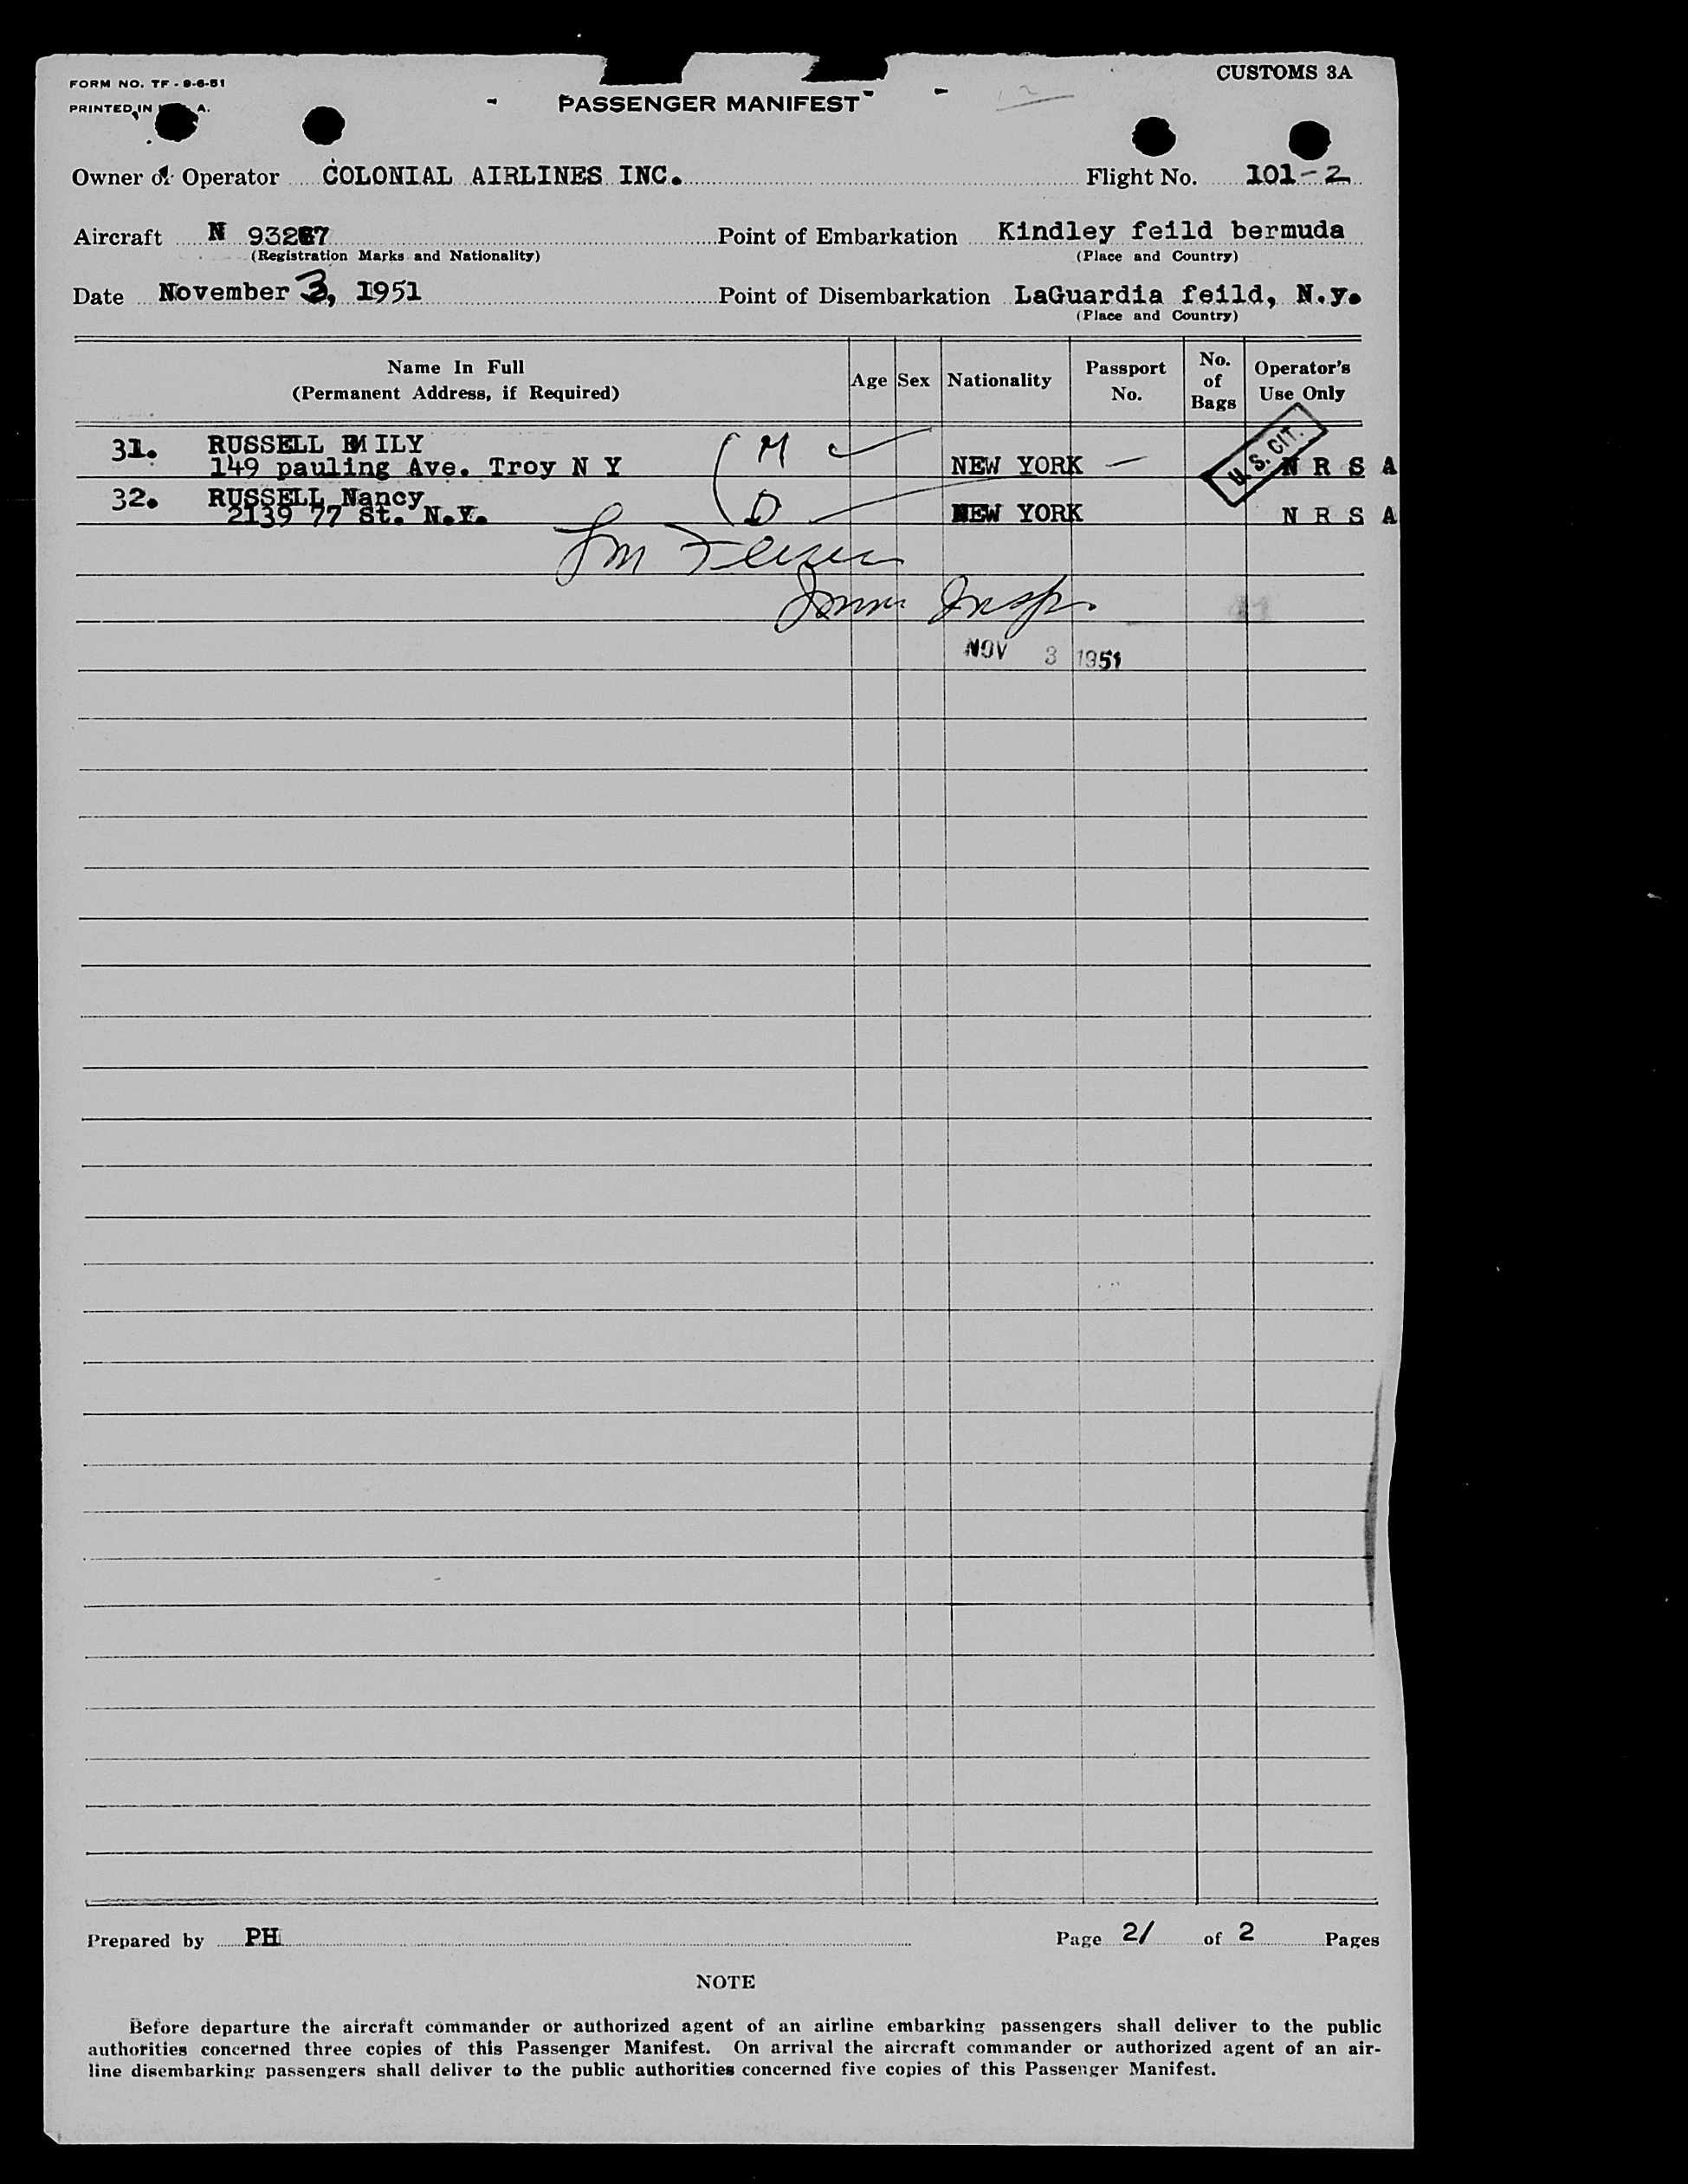 FORM NO. TF - 9-6-51
CUSTOMS 3A
PRINTED IN A.
PASSENGER MANIFEST
Owner or Operator COLONIAL AIRLINES INC. Flight No. 101-2
Aircraft N 93267 Point of Embarkation Kindley feild bermuda
(Registration Marks and Nationality) (Place and Country)
Date November 3, 1951 Point of Disembarkation LaGuardia feild, N.y.
(Place and Country)
Name In Full
(Permanent Address, if Required)
Age Sex Nationality
Passport
No.
No.
of
Bags
Operator's
Use Only
31. RUSSELL EMILY M
149 pauling Ave. Troy N Y NEW YORK — U.S. CIT. N R S A
32. RUSSELL Nancy D
2139 77 St. N.Y. NEW YORK N R S A
Imm Insp.
NOV 3 1951
Prepared by PH Page 2/ of 2 Pages
NOTE
Before departure the aircraft commander or authorized agent of an airline embarking passengers shall deliver to the public
authorities concerned three copies of this Passenger Manifest. On arrival the aircraft commander or authorized agent of an air-
line disembarking passengers shall deliver to the public authorities concerned five copies of this Passenger Manifest.